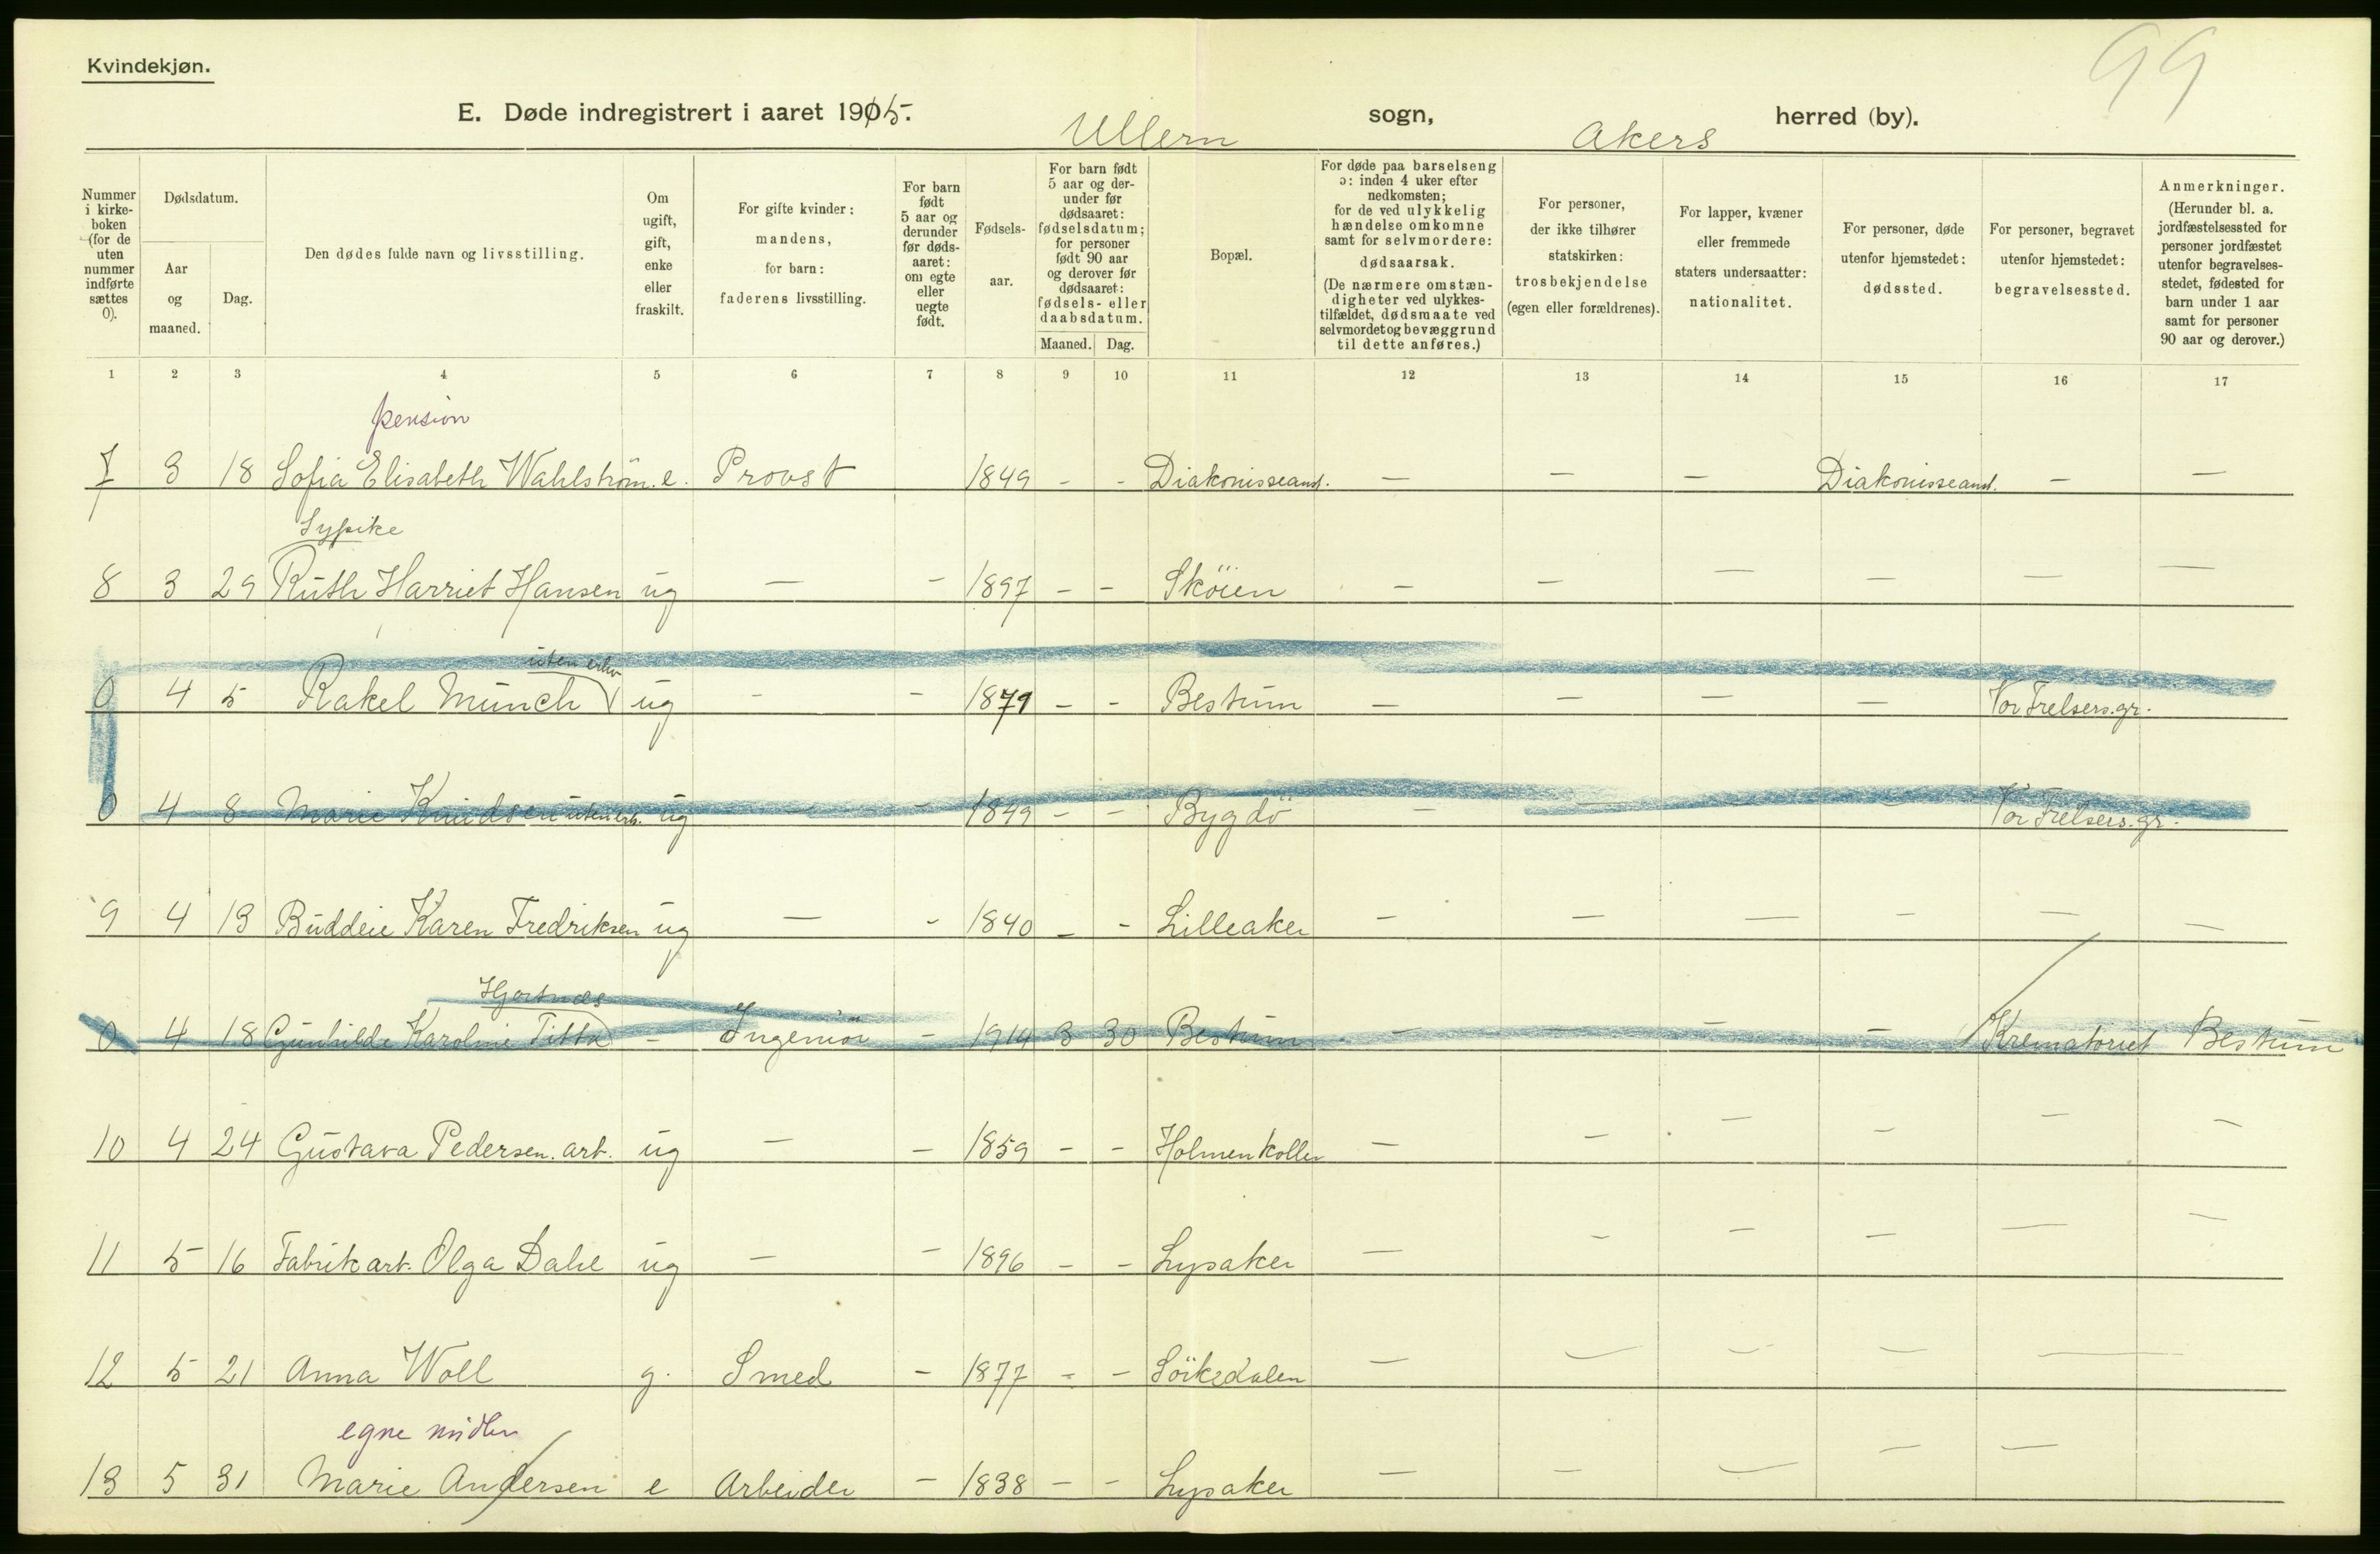 Kvindekjøn.
99
E. Døde indregistrert i aaret 1915. Ullern sogn, Akers herred (by).
Nummer i kirke-boken (for de uten nummer indførte sættes 0).
Dødsdatum.
Aar og maaned.
Dag.
Den dødes fulde navn og livsstilling.
Om ugift, gift, enke eller fraskilt.
For gifte kvinder: mandens, for barn: faderens livsstilling.
For barn født 5 aar og derunder før døds-aaret: om egte eller uegte født.
Fødsels-aar.
For barn født 5 aar og der-under før dødsaaret: fødselsdatum; for personer født 90 aar og derover før dødsaaret: fødsels- eller daabsdatum.
Maaned. Dag.
Bopæl.
For døde paa barselseng ɔ: inden 4 uker efter nedkomsten; for de ved ulykkelig hændelse omkomne samt for selvmordere: dødsaarsak. (De nærmere omstæn-digheter ved ulykkes-tilfældet, dødsmaate ved selvmordet og bevæggrund til dette anføres.)
For personer, der ikke tilhører statskirken: trosbekjendelse (egen eller forældrenes).
For lapper, kvæner eller fremmede staters undersaatter: nationalitet.
For personer, døde utenfor hjemstedet: dødssted.
For personer, begravet utenfor hjemstedet: begravelsessted.
Anmerkninger. (Herunder bl. a. jordfæstelsessted for personer jordfæstet utenfor begravelses-stedet, fødested for barn under 1 aar samt for personer 90 aar og derover.)
1 2 3 4 5 6 7 8 9 10 11 12 13 14 15 16 17
pension
7 3 18 Sofia Elisabeth Wahlström. e. Provst 1849 - - Diakonisseanst. — — — Diakonisseanst. — —
Sypike
8 3 29 Ruth Harriet Hansen ug — - 1897 - - Sköien — — — — — —
uten erhv
0 4 5 Rakel Munch ug - - 1879 - - Bestum — — — — Vor Frelsers. gr.
0 4 8 Marie Knudsen uten erh. ug - - 1849 - - Bygdö - - - - Vor Frelsers. gr.
9 4 13 Buddeie Karen Fredriksen ug — - 1840 - - Lilleaker — — — — — —
Hjortnæs
0 4 18 Gunhilde Karoline Titta - Ingeniör - 1914 3 30 Bestum - - - - Krematoriet Bestum
10 4 24 Gustava Pedersen. arb. ug — - 1859 - - Holmenkollen — — — — — —
11 5 16 Fabrikarb. Olga Dahl ug — - 1896 - - Lysaker — — — — — —
12 5 21 Anna Woll g. Smed - 1877 - - Sörkedalen — — — — —
egne midler
13 5 31 Marie Andersen e Arbeider - 1838 - - Lysaker — — — — —